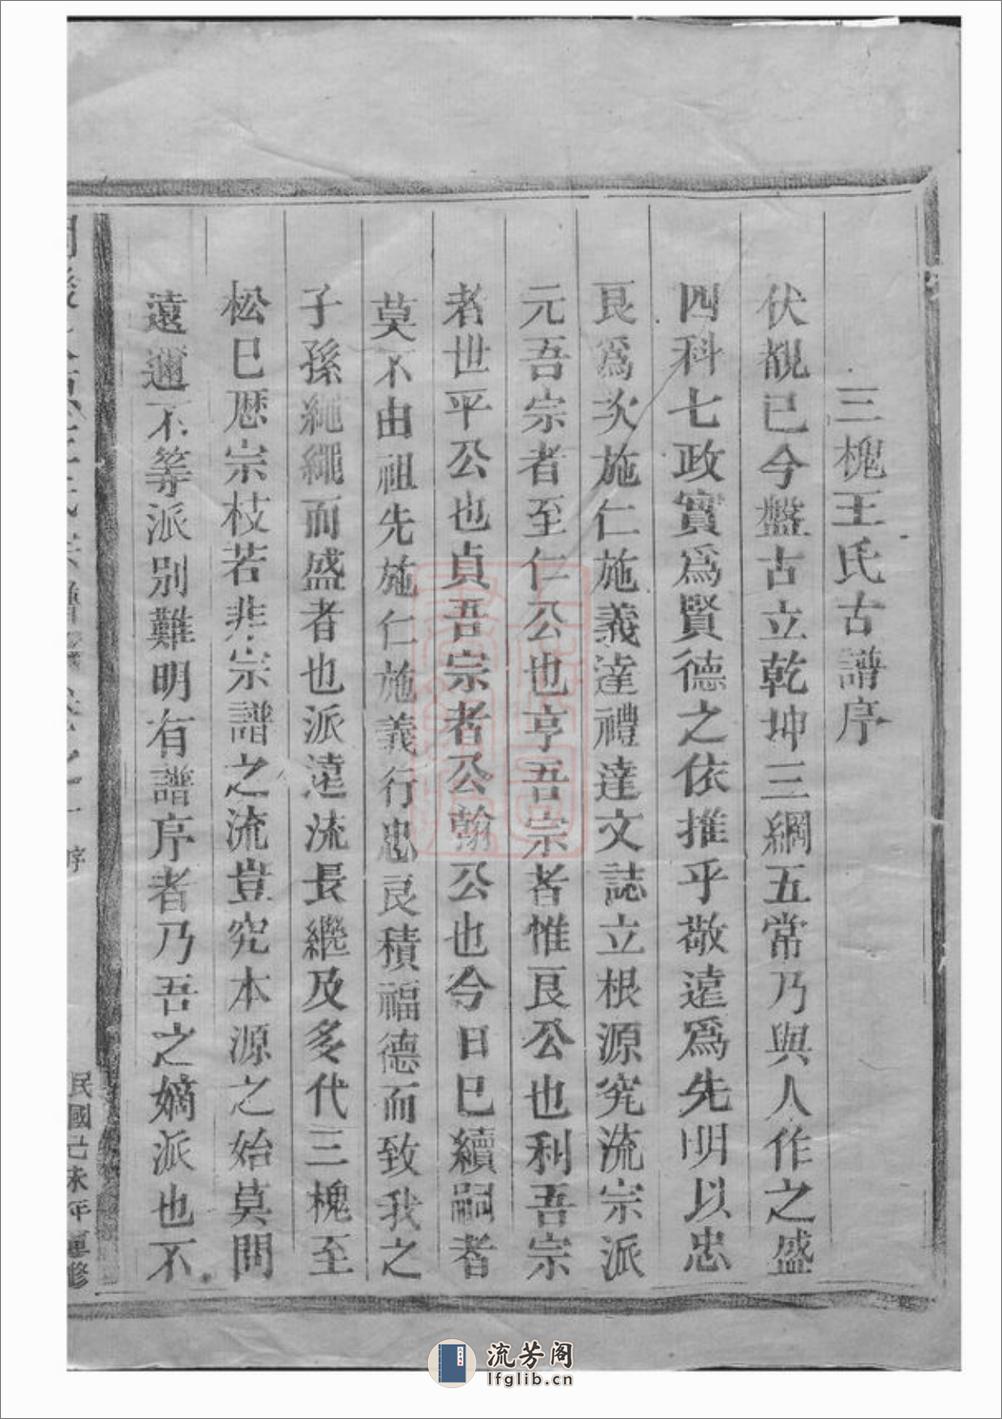 三槐王氏古譜序
伏覩已今盤古立乾坤三綱五常乃與人作之盛
四科七政實爲賢德之依推乎敬遠爲先明以忠
良爲次施仁施義達禮達文誌立根源究流宗派
元吾宗者至仁公也亨吾宗者惟良公也利吾宗
者世平公也貞吾宗者公翰公也今日已續嗣者
莫不由祖先施仁施義行忠良積福德而致我之
子孫繩繩而盛者也派遠流長繼及多代三槐至
松已歷宗枝若非宗譜之流豈究本源之始莫問
遠邇不等派別難明有譜序者乃吾之嫡派也不
王氏宗譜 卷之一 序
民國己未年重修
流芳阁
lfglib.cn